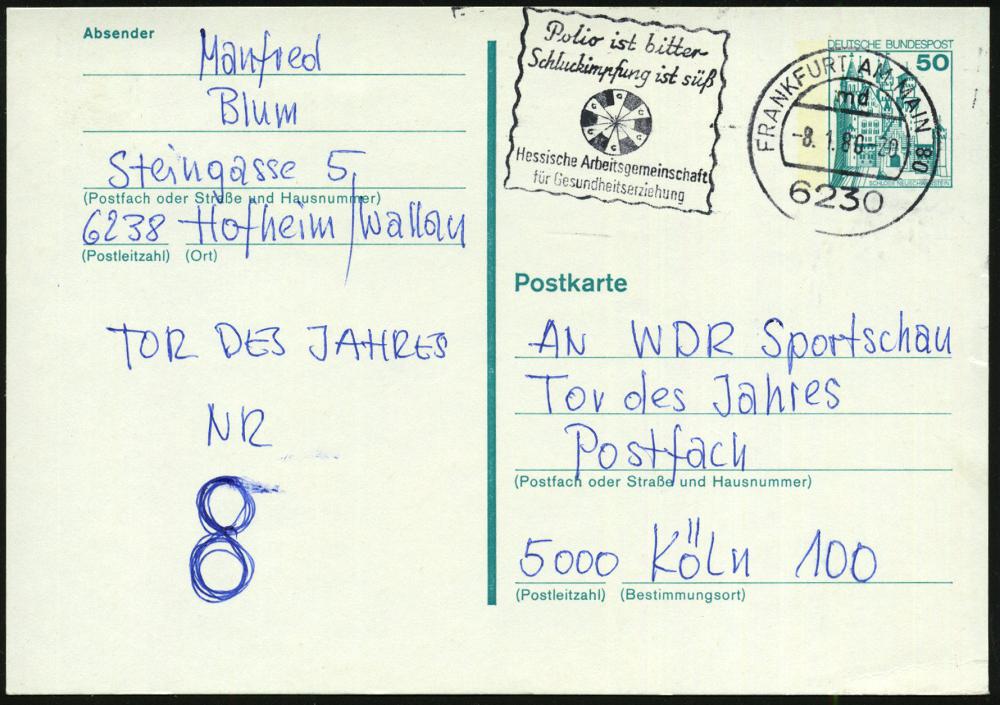 Absender
Manfred
Blum
Steingasse 5,
(Postfach oder Straße und Hausnummer)
6238 Hofheim/Wallau
(Postleitzahl) (Ort)
TOR DES JAHRES
NR
8
Polio ist bitter-
Schluckimpfung ist süß
Hessische Arbeitsgemeinschaft
für Gesundheitserziehung
FRANKFURT AM MAIN 80
md
-8. 1.80-20
6230
DEUTSCHE BUNDESPOST
50
SCHLOSS NEUSCHWANSTEIN
Postkarte
AN WDR Sportschau
Tor des Jahres
Postfach
(Postfach oder Straße und Hausnummer)
5000 Köln 100
(Postleitzahl) (Bestimmungsort)